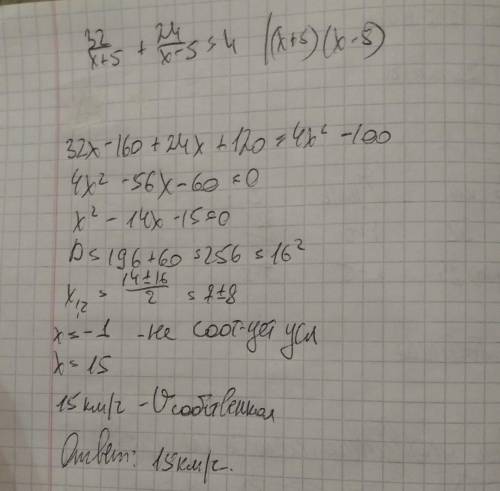 32/x+5 + 24/x-5 = 4 |(x+5)(x-5)
32x-160+24x+120=4x² -100
4x² -56x-60=0
x² -14x-15=0
D=196+60=256=16²
x₁,₂ = 14±16/2 = 7±8
x=-1 -не соот-ует усл
x=15
15км/ч - Vсобственная
Ответ: 15км/ч.